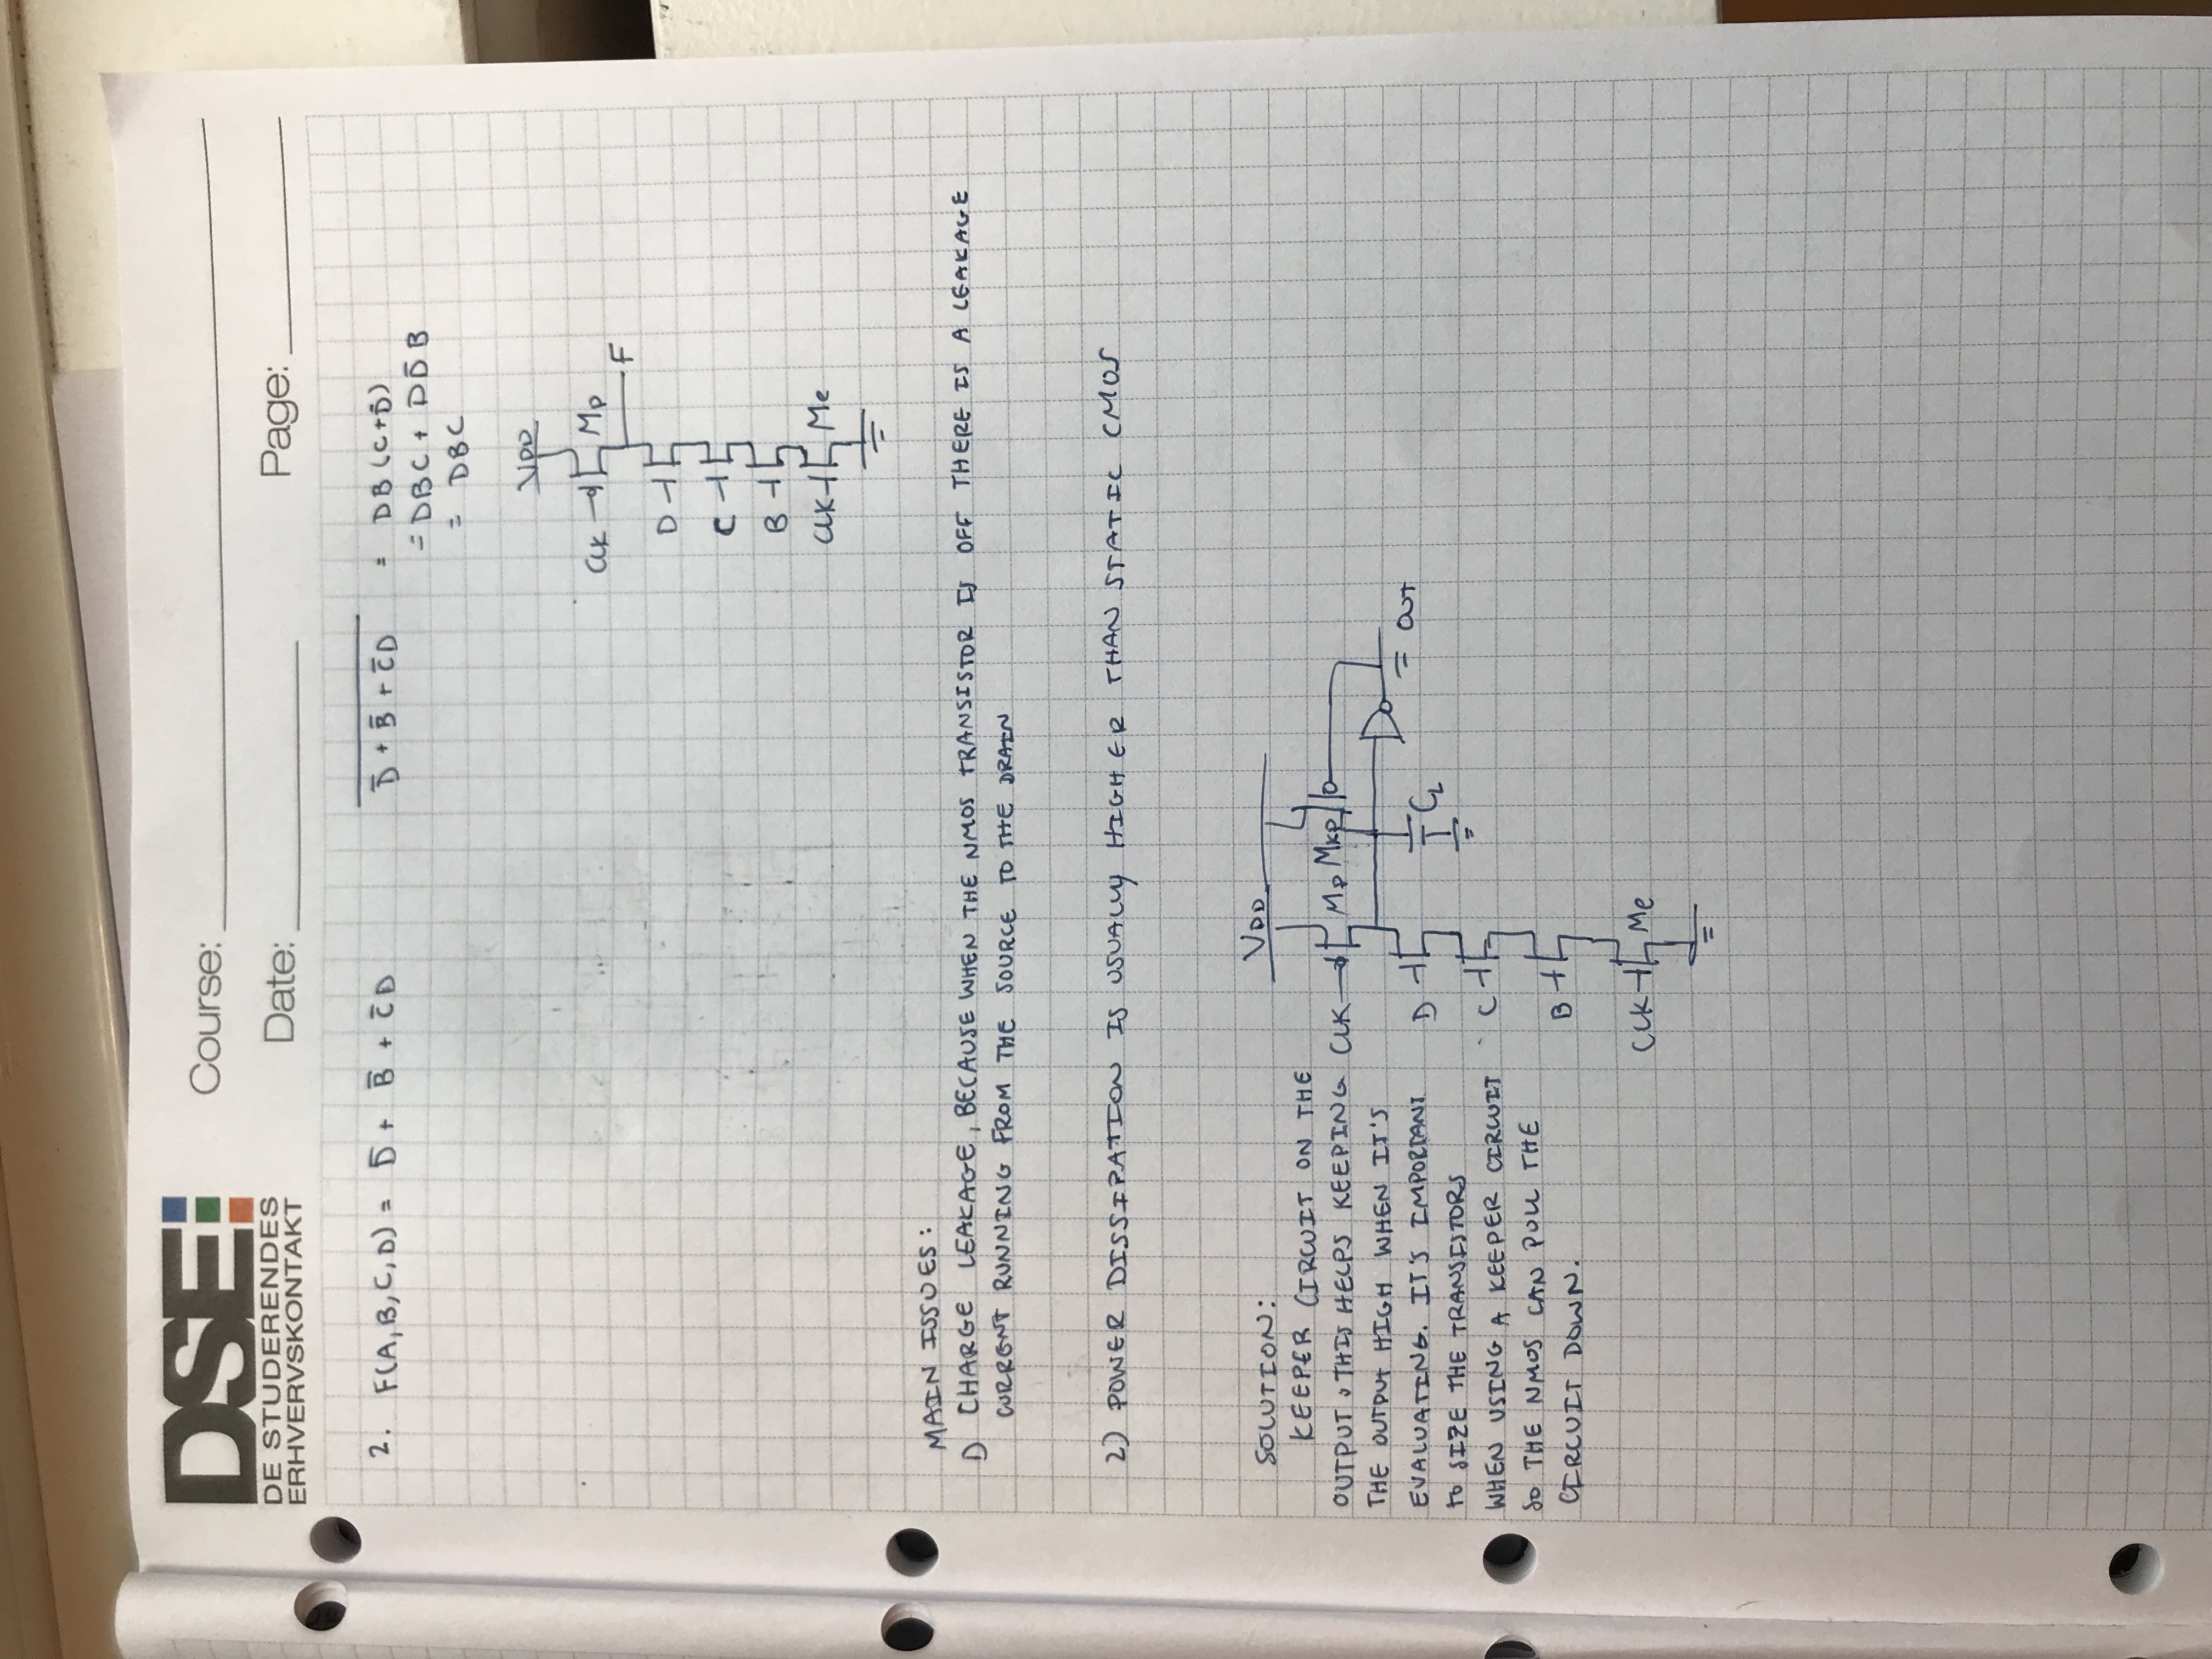 DSE
DE STUDERENDES
ERHVERVSKONTAKT
Course:
Date:
Page:
2. F(A,B,C,D) = D̄ + B̄ + C̄D
\overline{D̄ + B̄ + C̄D} = DB(C+D̄)
= DBC + DD̄B
= DBC
VDD
CLK Mp
F
D
C
B
CLK Me
MAIN ISSUES:
1) CHARGE LEAKAGE, BECAUSE WHEN THE NMOS TRANSISTOR IS OFF THERE IS A LEAKAGE
CURRENT RUNNING FROM THE SOURCE TO THE DRAIN
2) POWER DISSIPATION IS USUALLY HIGHER THAN STATIC CMOS
SOLUTION:
KEEPER CIRCUIT ON THE
OUTPUT. THIS HELPS KEEPING
THE OUTPUT HIGH WHEN IT'S
EVALUATING. IT'S IMPORTANT
TO SIZE THE TRANSISTORS
WHEN USING A KEEPER CIRCUIT
SO THE NMOS CAN PULL THE
CIRCUIT DOWN.
VDD
CLK Mp Mkp
OUT
D CL
C
B
CLK Me